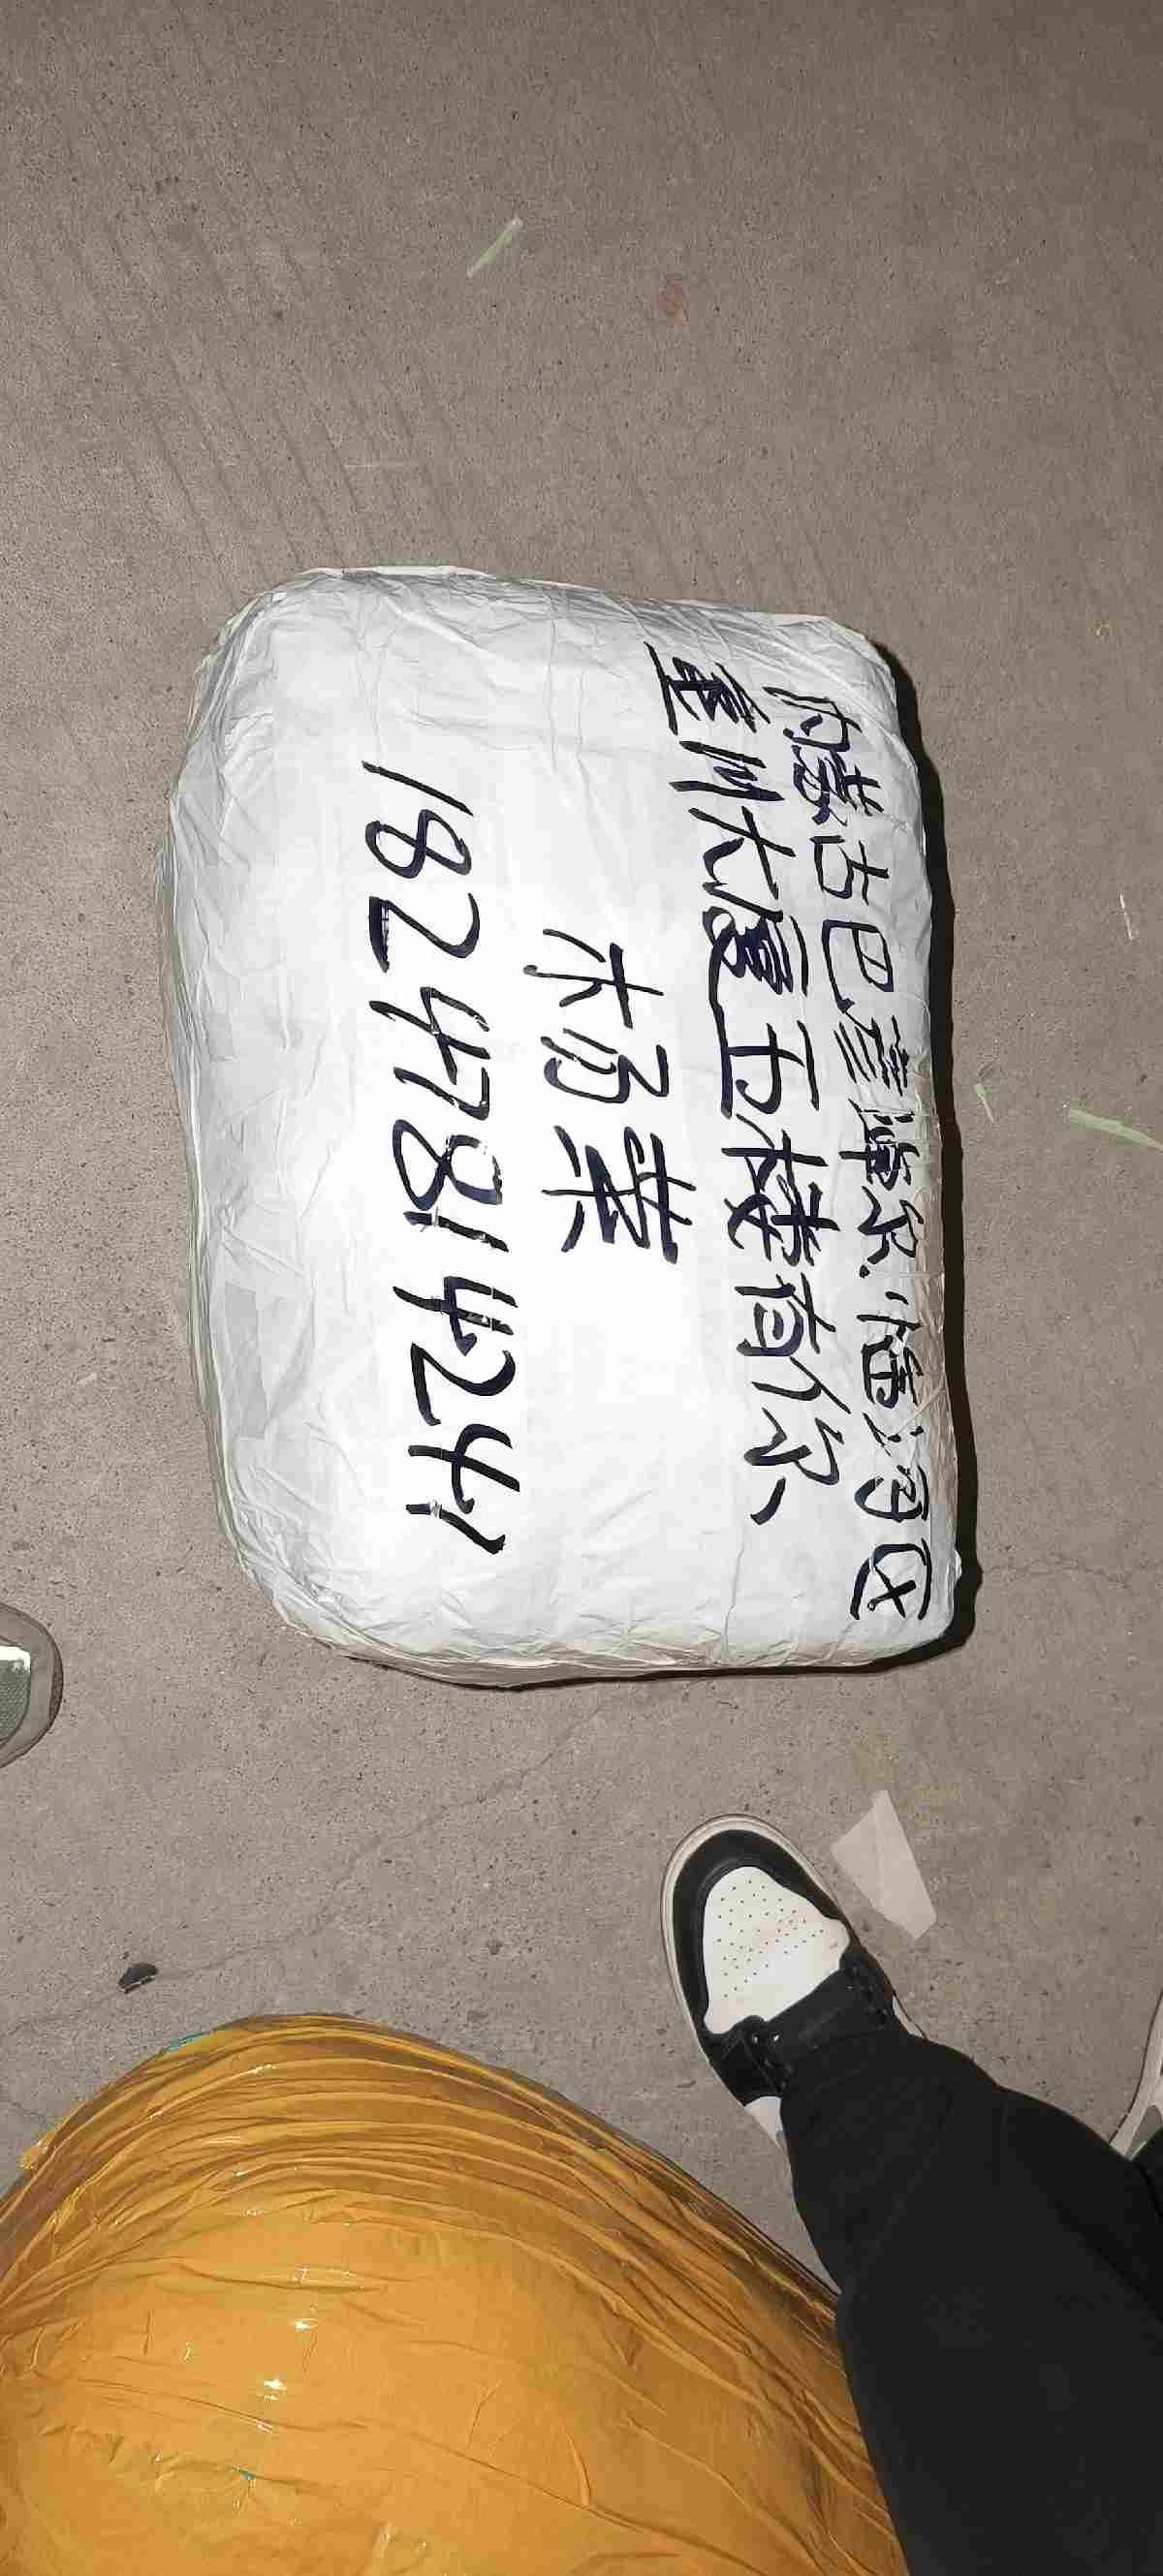 内蒙古巴彦淖尔.临河区
金川大厦五楼首尔、
杨莱
18247814241